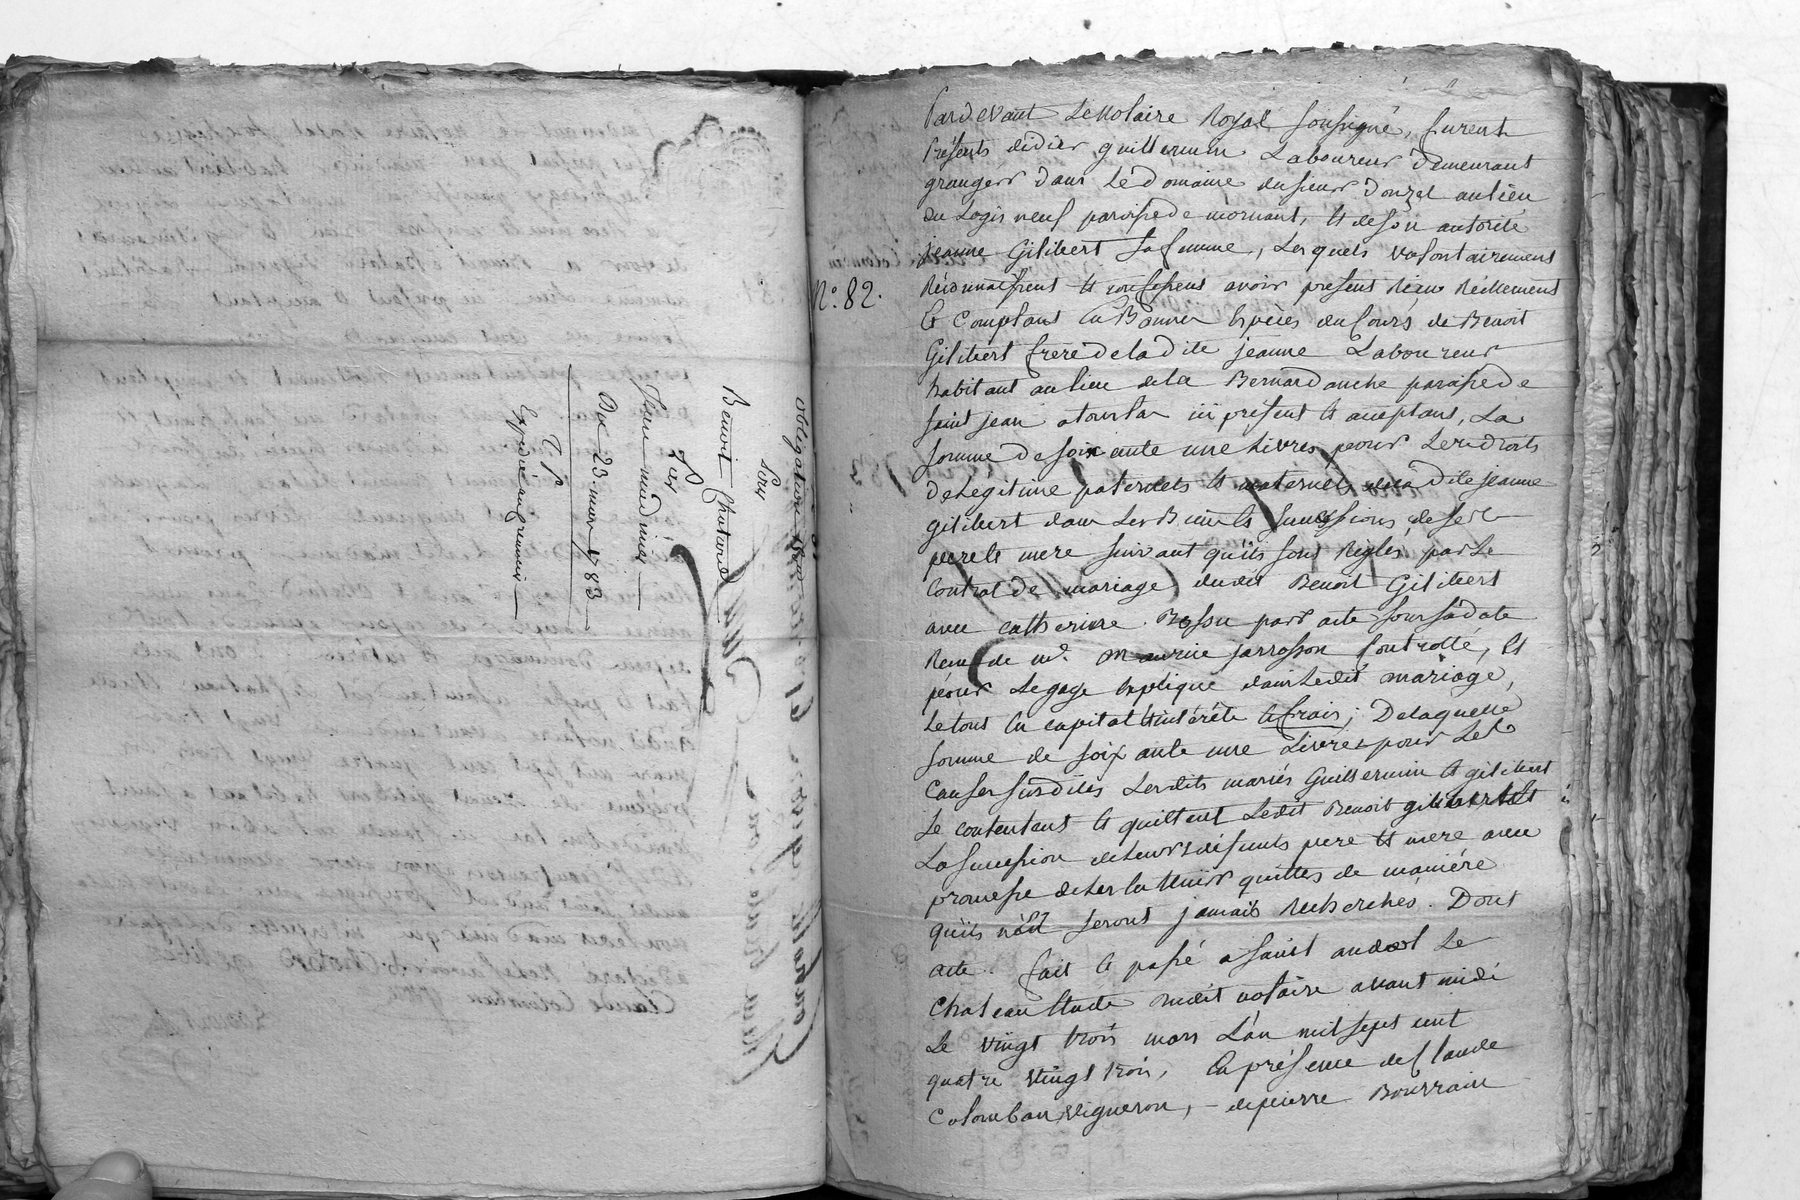 obligation 150 lt
Pour
Benoit Chatard
Sur
Jean madinier
Du 23. mars 1783
Expedié en premier
N.° 82.
Pardevant Le Notaire Royal soussigné, furent
Présents didier guillermin Laboureur demeurant
granger dans Le domaine du sieur donzel au lieu
du Logis neuf paroisse de mornant, et de son autorité
jeanne Gilibert sa femme, Lesquels volontairement
Reconnaissent et confessent avoir présentement Réellement
et Comptant En Bonnes Espèces du Cours de Benoit
Gilibert frere de la dite jeanne Laboureur
habitant au lieu de la Bernardanche paroisse de
saint jean atourla ici présent et acceptant, La
somme de soixante une Livres pour Les droits
de Legitime paternels et maternels de la dite jeanne
gilibert dans Les Biens et successions de ses
pere et mere suivant qu'ils sont Réglés par Le
Contrat de mariage dudit Benoit Gilibert
avec catherine Bossu par acte sous sa date
Reçu de me. maurice jarrosson Controllé, Et
pour Le gage Expliqué dans Ledit mariage,
Le tout En capital Et intérêts et frais; De laquelle
somme de soixante une Livres pour Les
Causes susdites Lesdits mariés Guillermin et gilibert
se contentent et quittent Ledit Benoit gilibert et
La succession de Leurs défunts pere Et mere avec
promesse de Les En tenir quittes de maniére
qu'ils n'en seront jamais Recherchés. Dont
acte. fait et passé a saint andeol Le
Chateau Etude dudit notaire avant midi
Le vingt trois mars L'an mil sept cent
quatre vingt trois, En présence de Claude
Colomban vigneron, - de pierre Bourrain